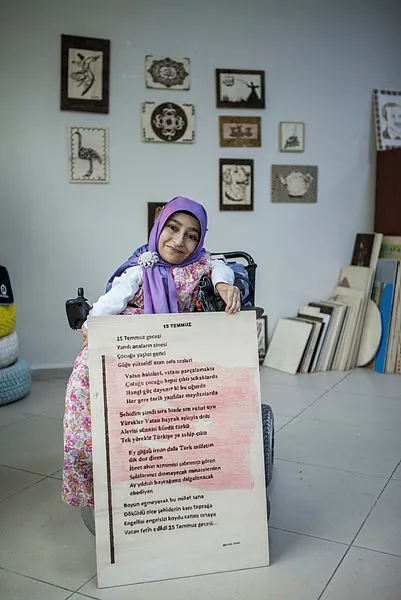 15 TEMMUZ
15 Temmuz gecesi
Yandı anaların sinesi
Çocuğu yaşlısı gencesi
Göğe yükseldi ezan sela sesleri
Vatan hainleri, vatanı parçalamakta
Çoluğu çocuğu hepsi çıktı sokaklarda
Hangi güç dayanır ki bu uğurda
Her gece tarih yazdılar meydanlarda
Şehidim şimdi sıra bizde sen rahat uyu
Yürekler Vatan bayrak aşkıyla dolu
Alevisi sünnisi kürdü türkü
Tek yürekle Türkiye ye sahip çıktı
Ey göğsü iman dolu Türk milleti
dik dur diren
azmimizi görsen
dinmeyecek minarelerden
Ay yıldızlı bayrağımız dalgalanacak
ebediyen
Boyun eğmeyecek bu millet sana
Döküldü nice şehiderin kanı toprağa
Engellisi engelsizi koydu canını ortaya
Vatan fethi edildi 15 Temmuz gecesi...